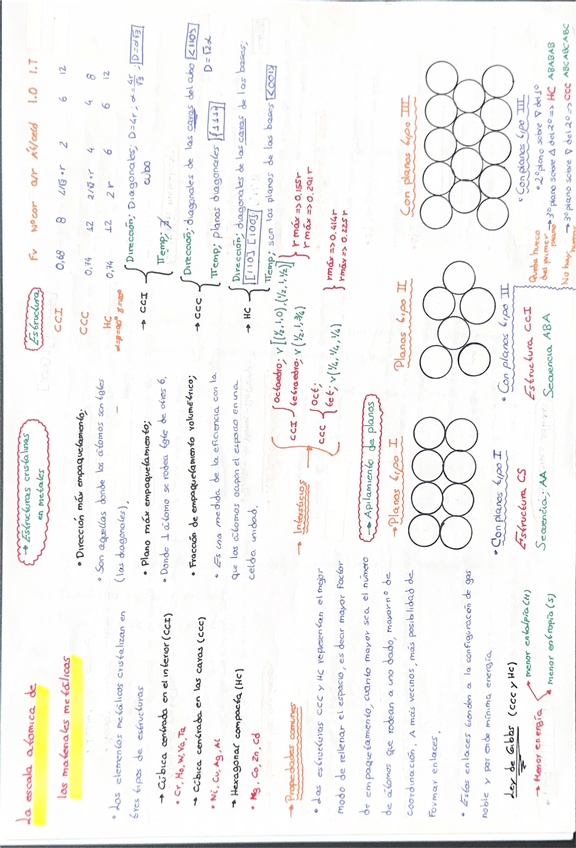 La escala atómica de
los materiales metálicos
• Los elementos metálicos cristalizan en
tres tipos de estructuras
→ Cúbica centrada en el interior (CCI)
• Cr, Mo, W, Va, Ta
→ Cúbica centrada en las caras (CCC)
• Ni, Cu, Ag, Al
→ Hexagonal compacta (HC)
• Mg, Co, Zn, Cd
→ Propiedades comunes
• Las estructuras CCC y HC representan el mejor
modo de rellenar el espacio, es decir mayor factor
de empaquetamiento, cuanto mayor sea el número
de átomos que rodean a uno dado, mayor nº de
coordinación. A más vecinos, más posibilidad de
formar enlaces.
• Estos enlaces tienden a la configuración de gas
noble y por ende mínima energía
Ley de Gibbs (CCC y HC)
→ Menor energía
menor entalpía (H)
menor entropía (S)
→ Estructuras cristalinas
en metales
• Dirección más empaquetamiento;
• Son aquellas donde los átomos son tgtes
(las diagonales).
• Plano más empaquetamiento;
• Donde 1 átomo se rodea tgte de otros 6.
• Fracción de empaquetamiento volumétrico;
• Es una medida de la eficiencia con la
que los átomos ocupan el espacio en una
celda unidad.
→ Intersticios
CCI
Octaedro; v [(½,1,0),(½,½,½)]
tetraedro; v (½,1,¾)
r máx => 0.155r
r máx => 0.291r
CCC
Oct;
tet; v (¼,¼,¼)
rmáx => 0.414r
rmáx => 0.225r
→ Apilamiento de planos
→ Planos tipo I
• Con planos tipo I
Estructura CS
Secuencia; AA
Planos tipo II
• Con planos tipo II
Estructura CCI
Secuencia ABA
Con planos tipo III
• Con planos tipo III
• 2º plano sobre ∇ del 1º
→ 3º plano sobre Δ del 2º => HC ABABAB
→ 3º plano sobre ∇ del 2º => CCC ABCABCABC
Queda hueco
del primer
plano
No hay
Estructura Fv NºCor a/r At/celd I.O I.T
CCI 0,68 8 4/√3·r 2 6 12
CCC 0,74 12 2√2·r 4 4 8
HC 0,74 12 2r 6 6 12
→ CCI
Dirección; Diagonales; D=4r; a=4r/√3; D=a√3
cubo
→ CCC
Dirección; diagonales de las caras del cubo <110>
planos diagonales {111}
D=√2a
→ HC
Dirección; diagonales de las caras de las bases;
[110] [100]
son las planos de las bases (001)